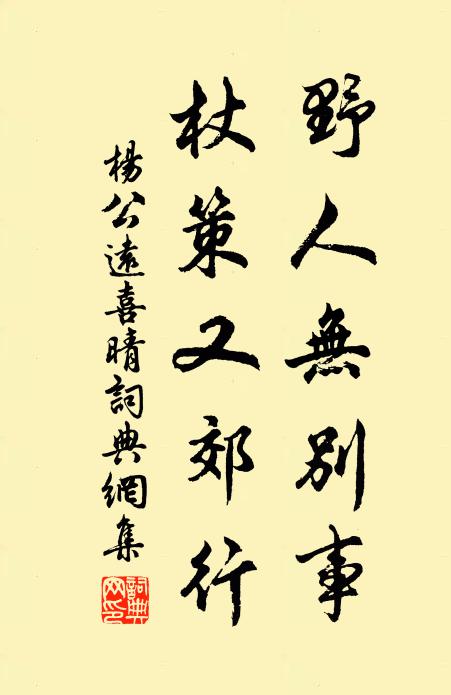 野人無別事
杖策又郊行
楊公遠喜晴詞典網集
詞典網印